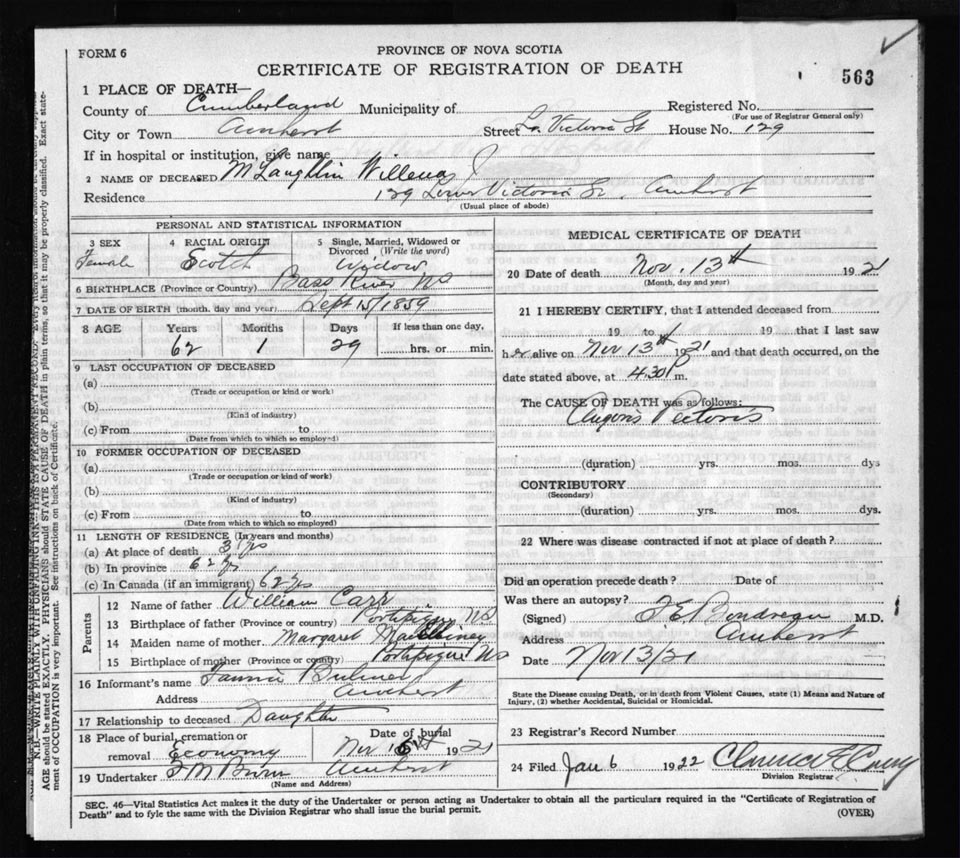 FORM 6
PROVINCE OF NOVA SCOTIA
CERTIFICATE OF REGISTRATION OF DEATH
563
1 PLACE OF DEATH—
County of Cumberland Municipality of Registered No.
(For use of Registrar General only)
City or Town Amherst Street Lr Victoria St House No. 129
If in hospital or institution, give name
2 NAME OF DECEASED McLaughlin Willena J
Residence 129 Lower Victoria St. Amherst
(Usual place of abode)
PERSONAL AND STATISTICAL INFORMATION
3 SEX
Female
4 RACIAL ORIGIN
Scotch
5 Single, Married, Widowed or Divorced (Write the word)
Widow
6 BIRTHPLACE (Province or Country) Bass River NS
7 DATE OF BIRTH (month, day and year) Sept 15/1859
8 AGE Years Months Days If less than one day,
62 1 29 hrs. or min.
9 LAST OCCUPATION OF DECEASED
(a)
(Trade or occupation or kind or work)
(b)
(Kind of industry)
(c) From to
(Date from which to which so employed)
10 FORMER OCCUPATION OF DECEASED
(a)
(Trade or occupation or kind of work)
(b)
(Kind of industry)
(c) From to
(Date from which to which so employed)
11 LENGTH OF RESIDENCE (In years and months)
(a) At place of death 31 yrs
(b) In province 62 yrs
(c) In Canada (if an immigrant) 62 yrs
Parents
12 Name of father William Carr
13 Birthplace of father (Province or country) Portipique NS
14 Maiden name of mother. Margaret
15 Birthplace of mother (Province or country) Portipique NS
16 Informant's name Fannie Bulmer
Address Amherst
17 Relationship to deceased Daughter
18 Place of burial, cremation or removal Economy
Date of burial
Nov 15th 1921
19 Undertaker F M Amherst
(Name and Address)
MEDICAL CERTIFICATE OF DEATH
20 Date of death Nov. 13th 1921
(Month, day and year)
21 I HEREBY CERTIFY, that I attended deceased from
19 to 19 that I last saw
her alive on Nov 13th 1921 and that death occurred, on the
date stated above, at 4.30 P m.
The CAUSE OF DEATH was as follows:
Angoris Pectoris
(duration) yrs. mos. dys
CONTRIBUTORY
(Secondary)
(duration) yrs. mos. dys.
22 Where was disease contracted if not at place of death?
Did an operation precede death? Date of
Was there an autopsy?
(Signed) M.D.
Address Amherst
Date Nov 13/21
State the Disease causing Death, or in death from Violent Causes, state (1) Means and Nature of
Injury, (2) whether Accidental, Suicidal or Homicidal.
23 Registrar's Record Number
24 Filed Jan 6 1922 Clarence E
Division Registrar
SEC. 46—Vital Statistics Act makes it the duty of the Undertaker or person acting as Undertaker to obtain all the particulars required in the "Certificate of Registration of
Death" and to fyle the same with the Division Registrar who shall issue the burial permit.
(OVER)
N.B.—WRITE PLAINLY WITH UNFADING INK—THIS IS A PERMANENT RECORD. Every item of information should be
AGE should be stated EXACTLY. PHYSICIANS should STATE CAUSE OF DEATH in plain terms, so that it may be properly classified. Exact state-
ment of OCCUPATION is very important. See instructions on back of Certificate.